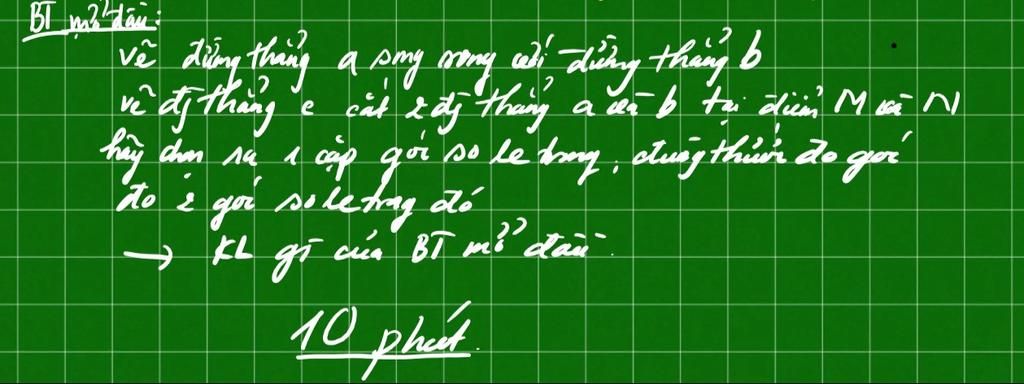 BT mở đầu:
vẽ đường thẳng a song song với đường thẳng b
vẽ đg thẳng c cắt 2 đg thẳng a và b tại điểm M và N
hãy chọn ra 1 cặp góc so le trong, dùng thước đo góc
đo 2 góc so le trong đó
→ KL gì của BT mở đầu.
10 phút.